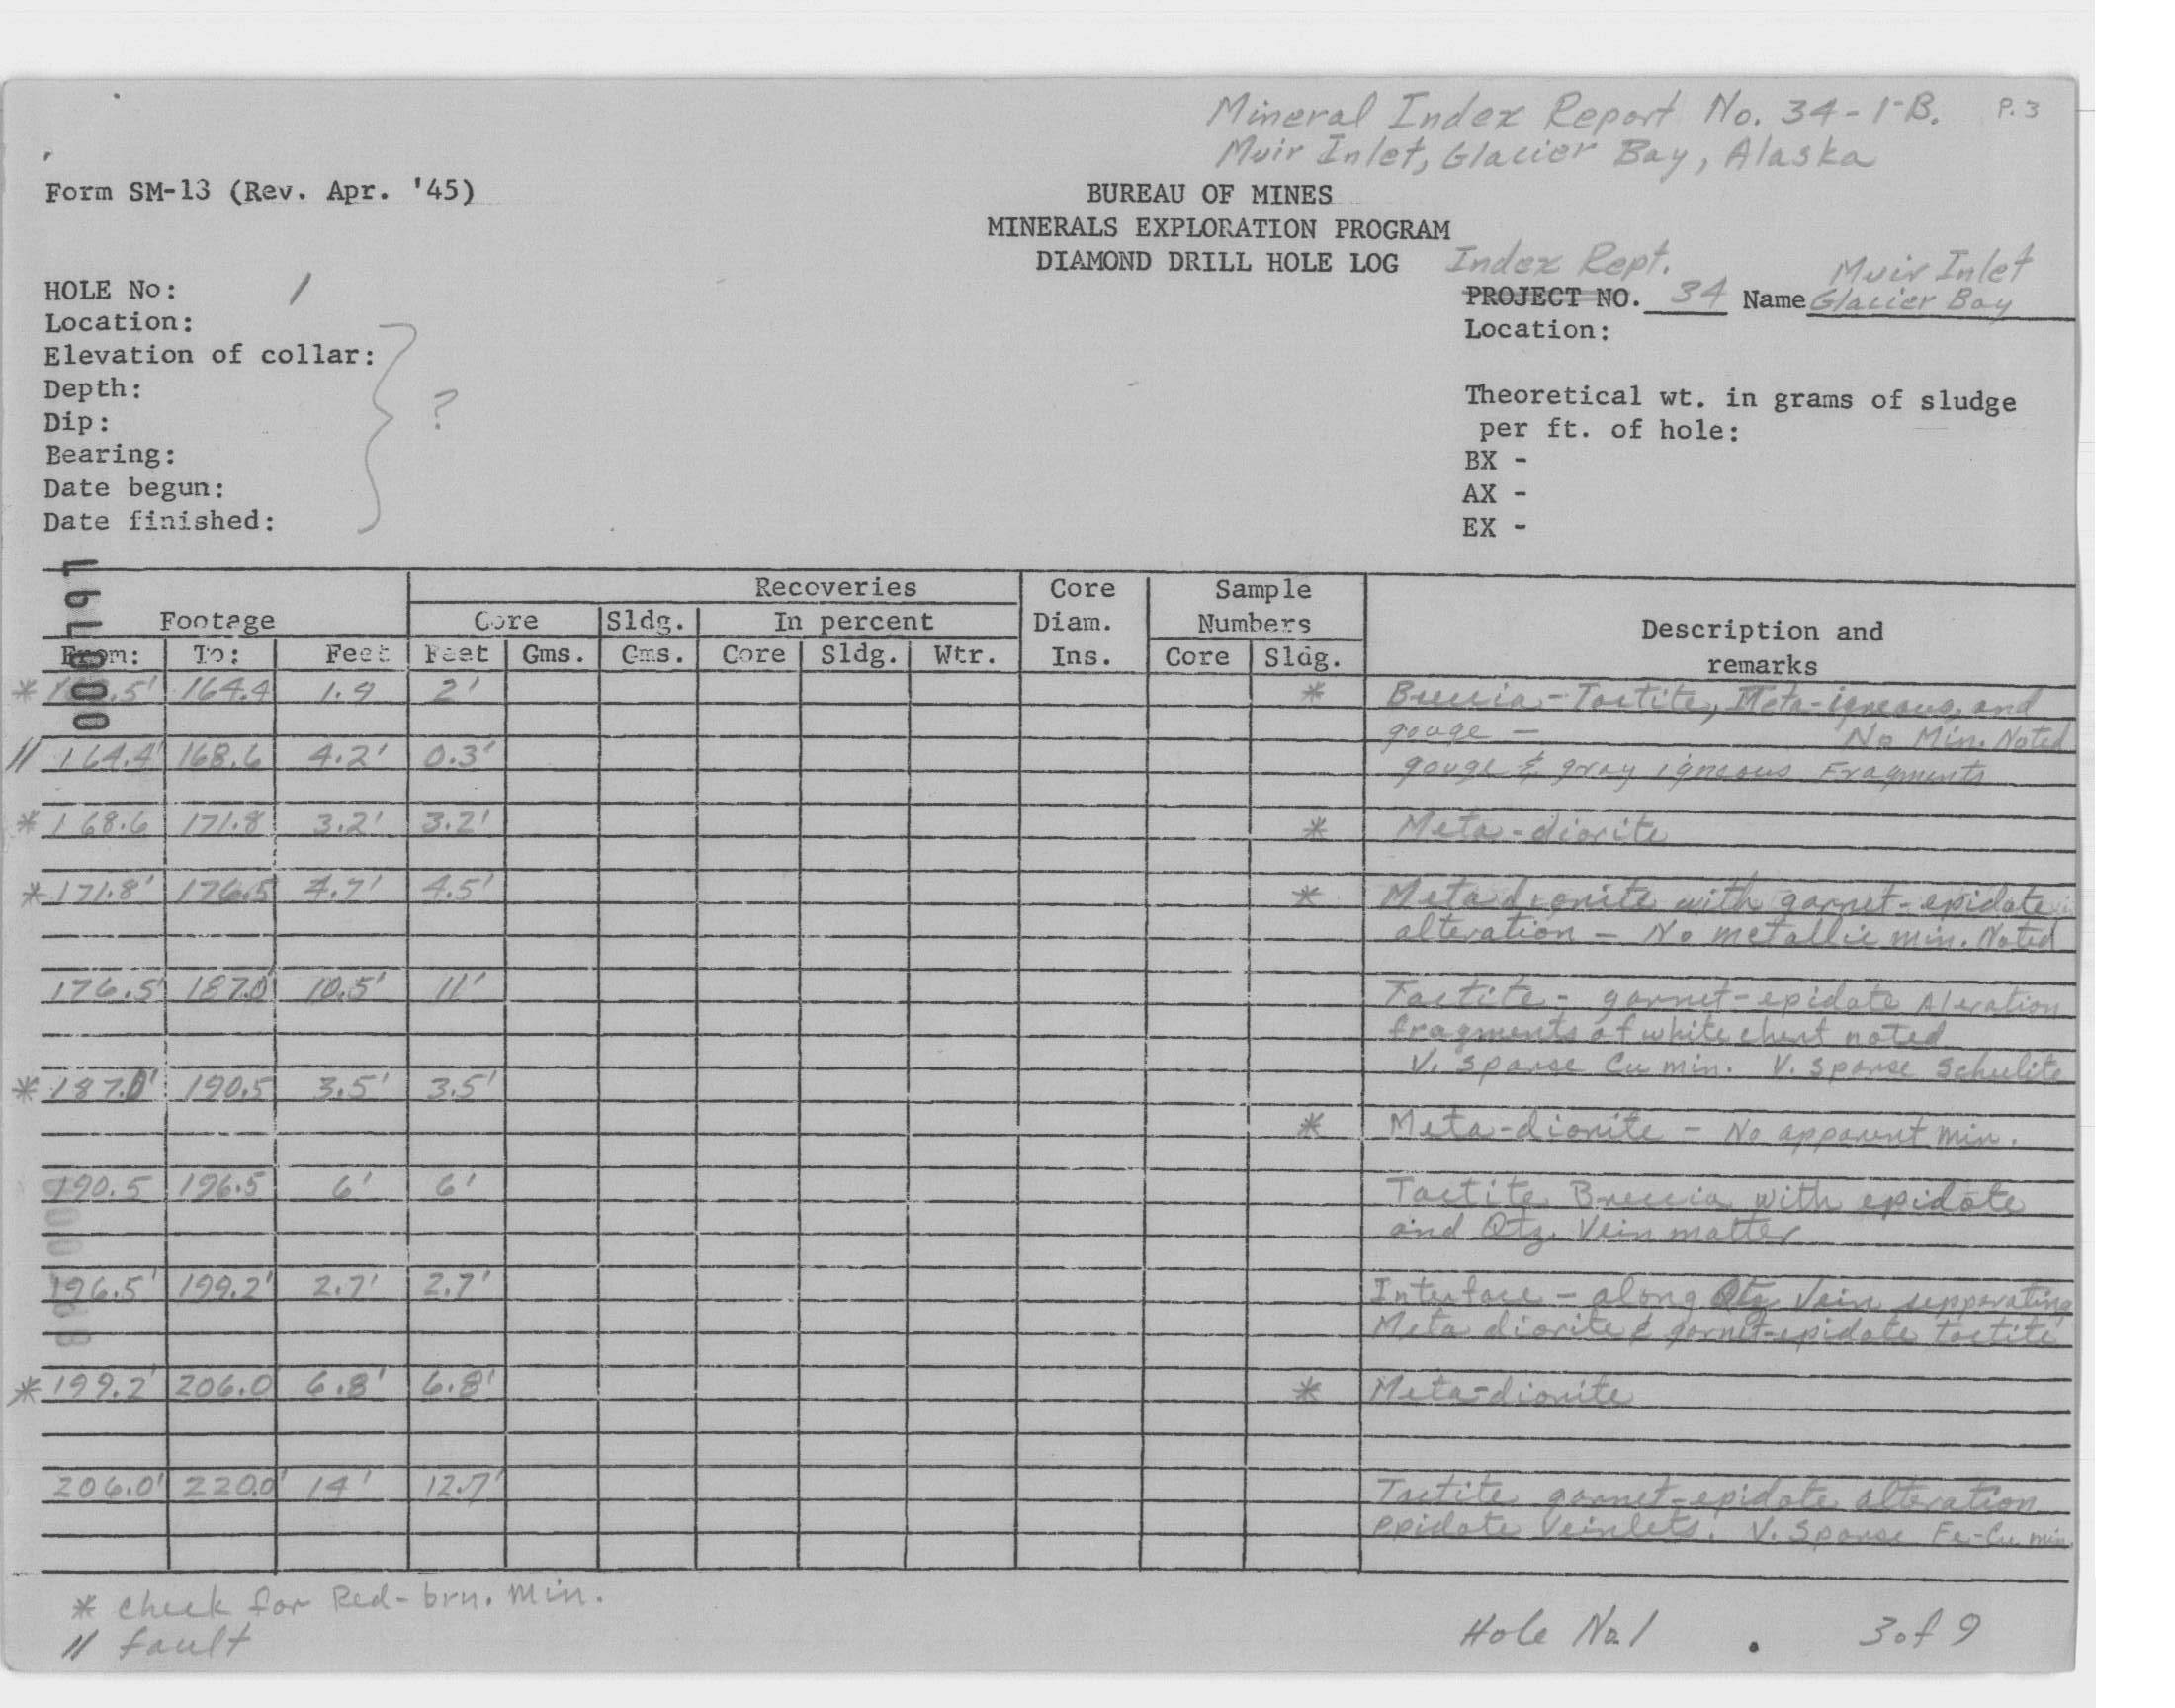 Mineral Index Report No. 34-1-B. P.3
Muir Inlet, Glacier Bay, Alaska
Form SM-13 (Rev. Apr. '45)
BUREAU OF MINES
MINERALS EXPLORATION PROGRAM
DIAMOND DRILL HOLE LOG
Index Rept.
HOLE No: 1
PROJECT NO. 34 Name Muir Inlet
Glacier Bay
Location:
Location:
Elevation of collar:
Depth:
Dip:
?
Bearing:
Date begun:
Date finished:
Theoretical wt. in grams of sludge
per ft. of hole:
BX -
AX -
EX -
Recoveries Core Sample
Footage Core Sldg. In percent Diam. Numbers Description and
From: To: Feet Feet Gms. Gms. Core Sldg. Wtr. Ins. Core Sldg. remarks
* .5' 164.4 1.9 2' * Breccia - Tactite, Meta-igneous, and
gouge - No Min. Noted
// 164.4' 168.6 4.2' 0.3' gouge & gray igneous Fragments
* 168.6 171.8 3.2' 3.2' * Meta-diorite
* 171.8' 176.5 4.7' 4.5' * Meta diorite with garnet-epidote
alteration - No metallic min. Noted
176.5' 187.0' 10.5' 11' Tactite - garnet-epidote Aleration
fragments of white chert noted
V. Sparse Cu min. V. Sparse Scheelite
* 187.0' 190.5 3.5' 3.5'
* Meta-diorite - No apparent min.
190.5 196.5 6' 6' Tactite Breccia with epidote
and Qtz. Vein matter
196.5' 199.2' 2.7' 2.7' Interface - along Qtz Vein sepperating
Meta diorite & garnet-epidote tactite
* 199.2' 206.0 6.8' 6.8' * Meta-diorite
206.0' 220.0' 14' 12.7' Tactite garnet-epidote alteration
epidote Veinlets. V. Sparse Fe-Cu min.
* check for Red-brn. Min.
// fault
Hole No. 1 3 of 9